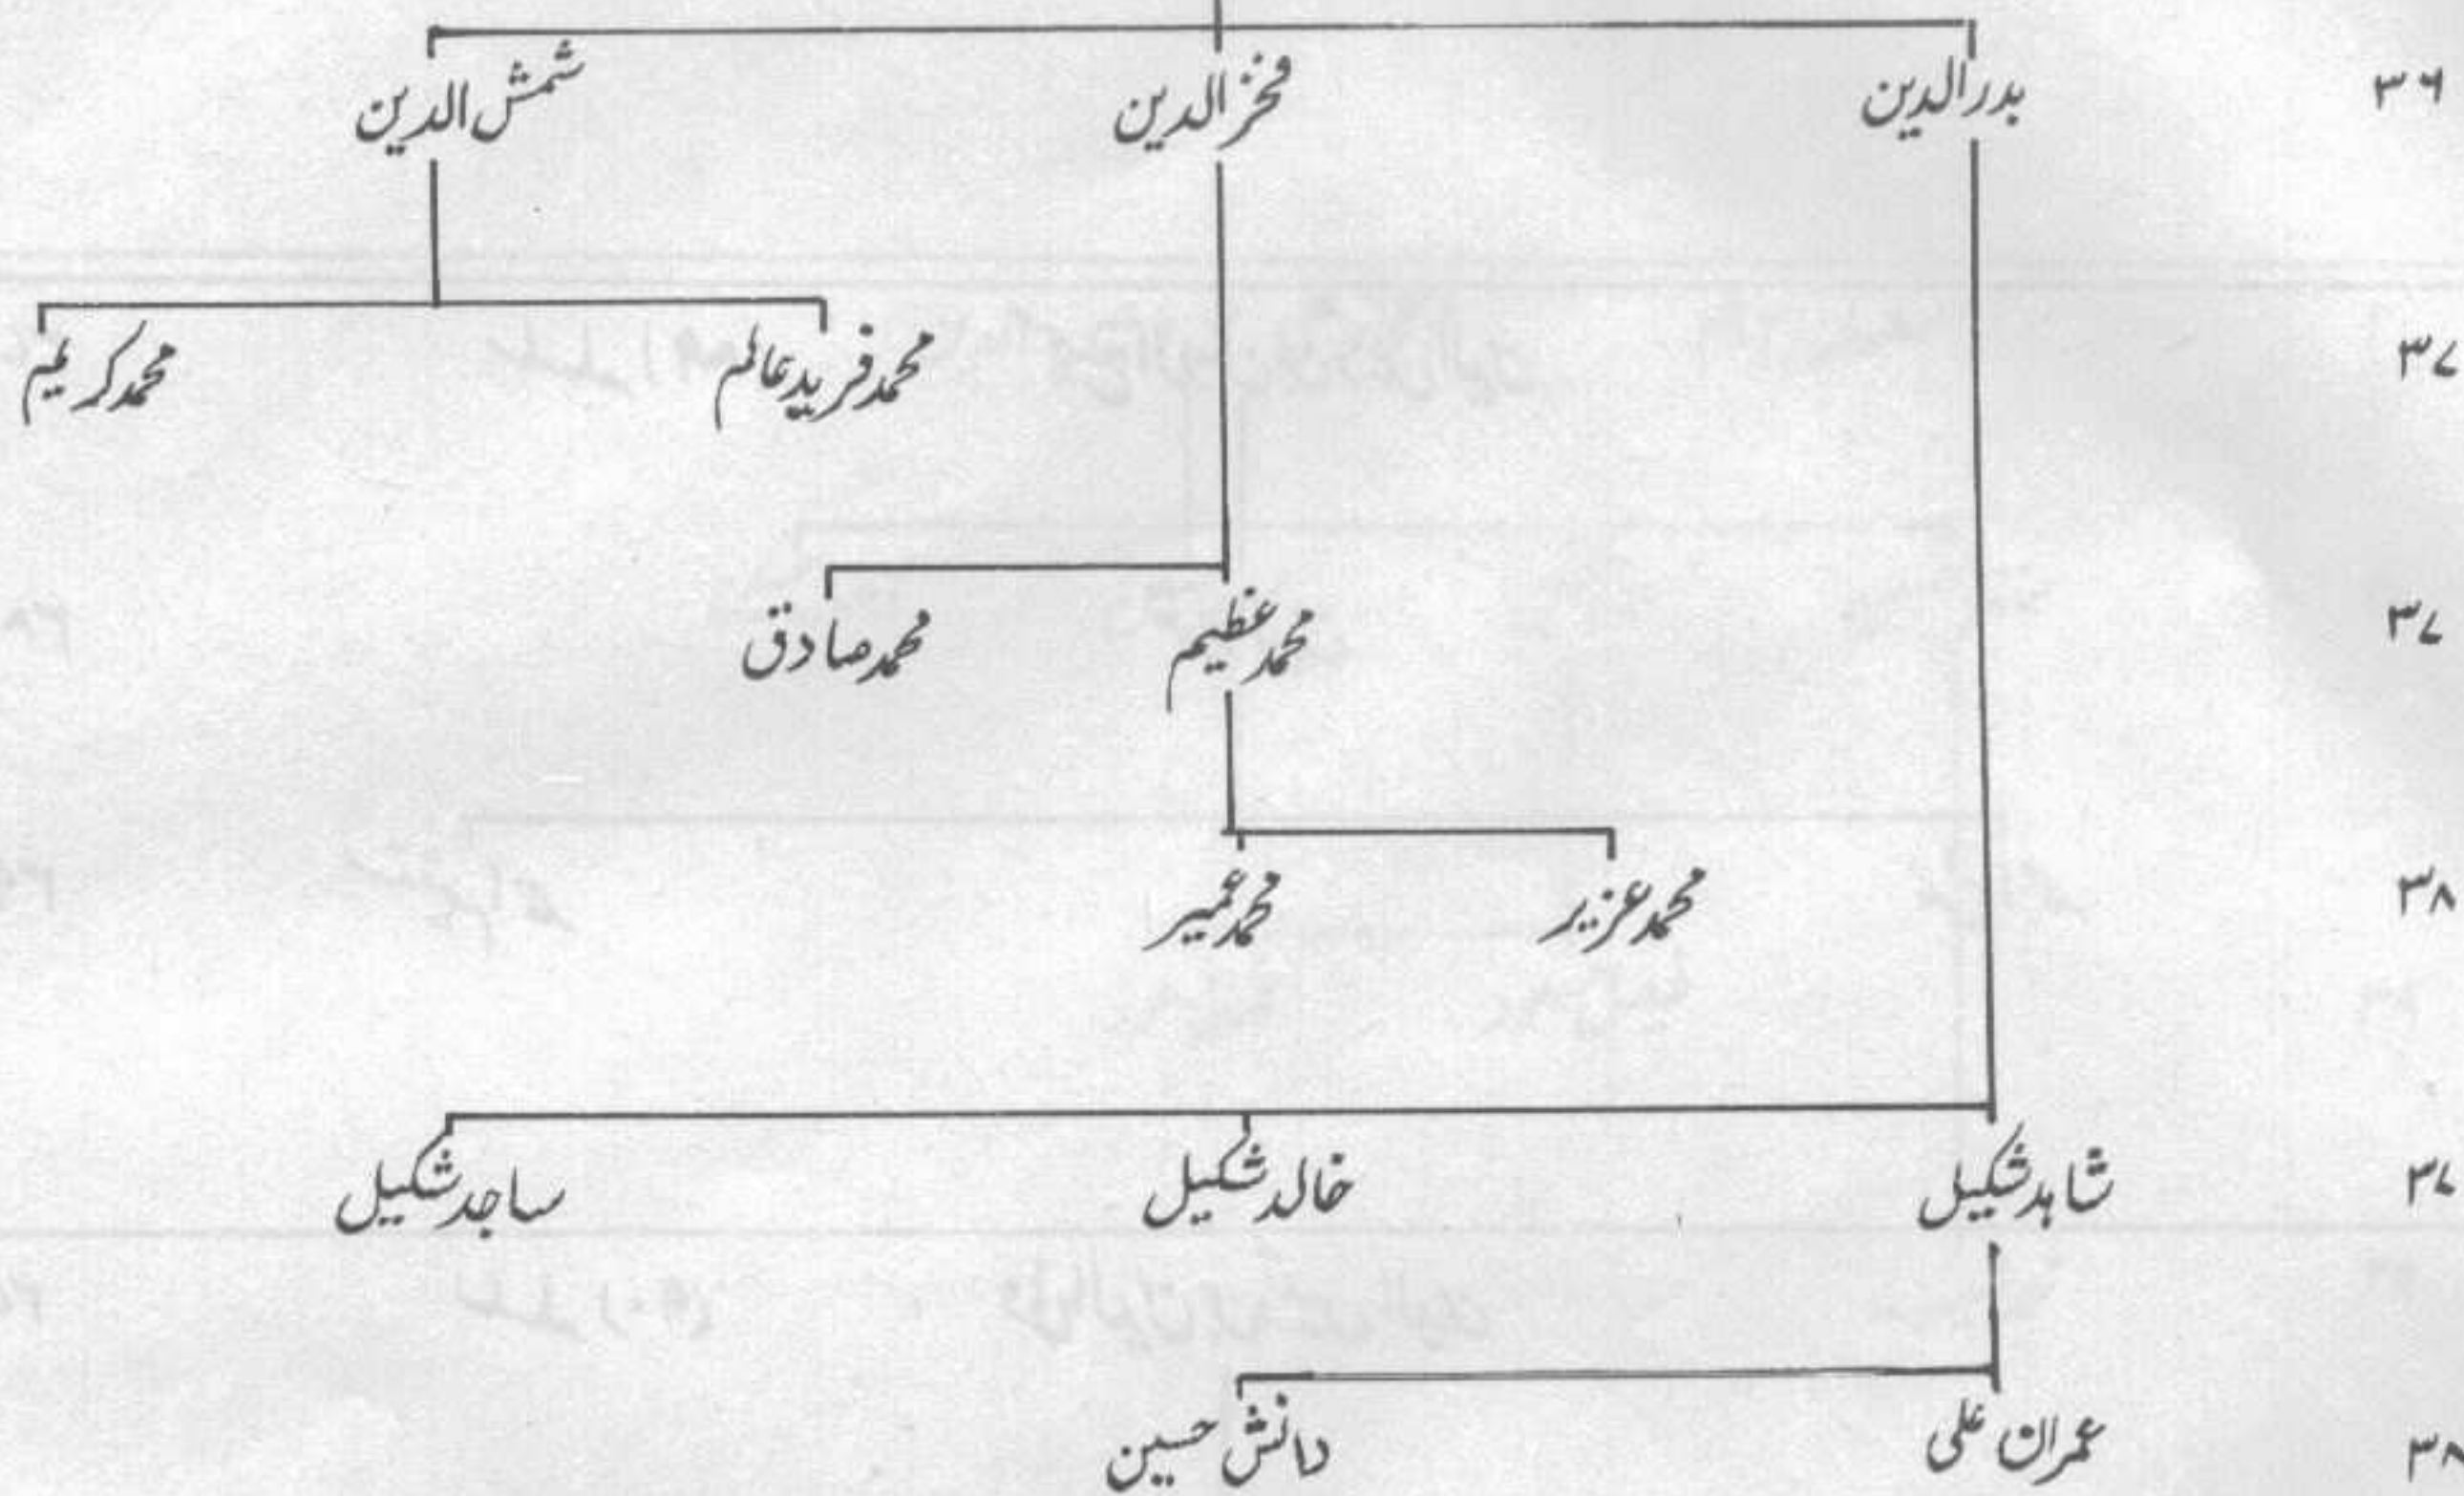 ۳۶ بدرالدین فخرالدین شمش الدین
۳۷ محمد فرید عالم محمد کریم
۳۷ محمد عظیم محمد صادق
۳۸ محمد عزیر محمد عمیر
۳۷ شاہد شکیل خالد شکیل ساجد شکیل
۳۸ عمران علی دانش حسین